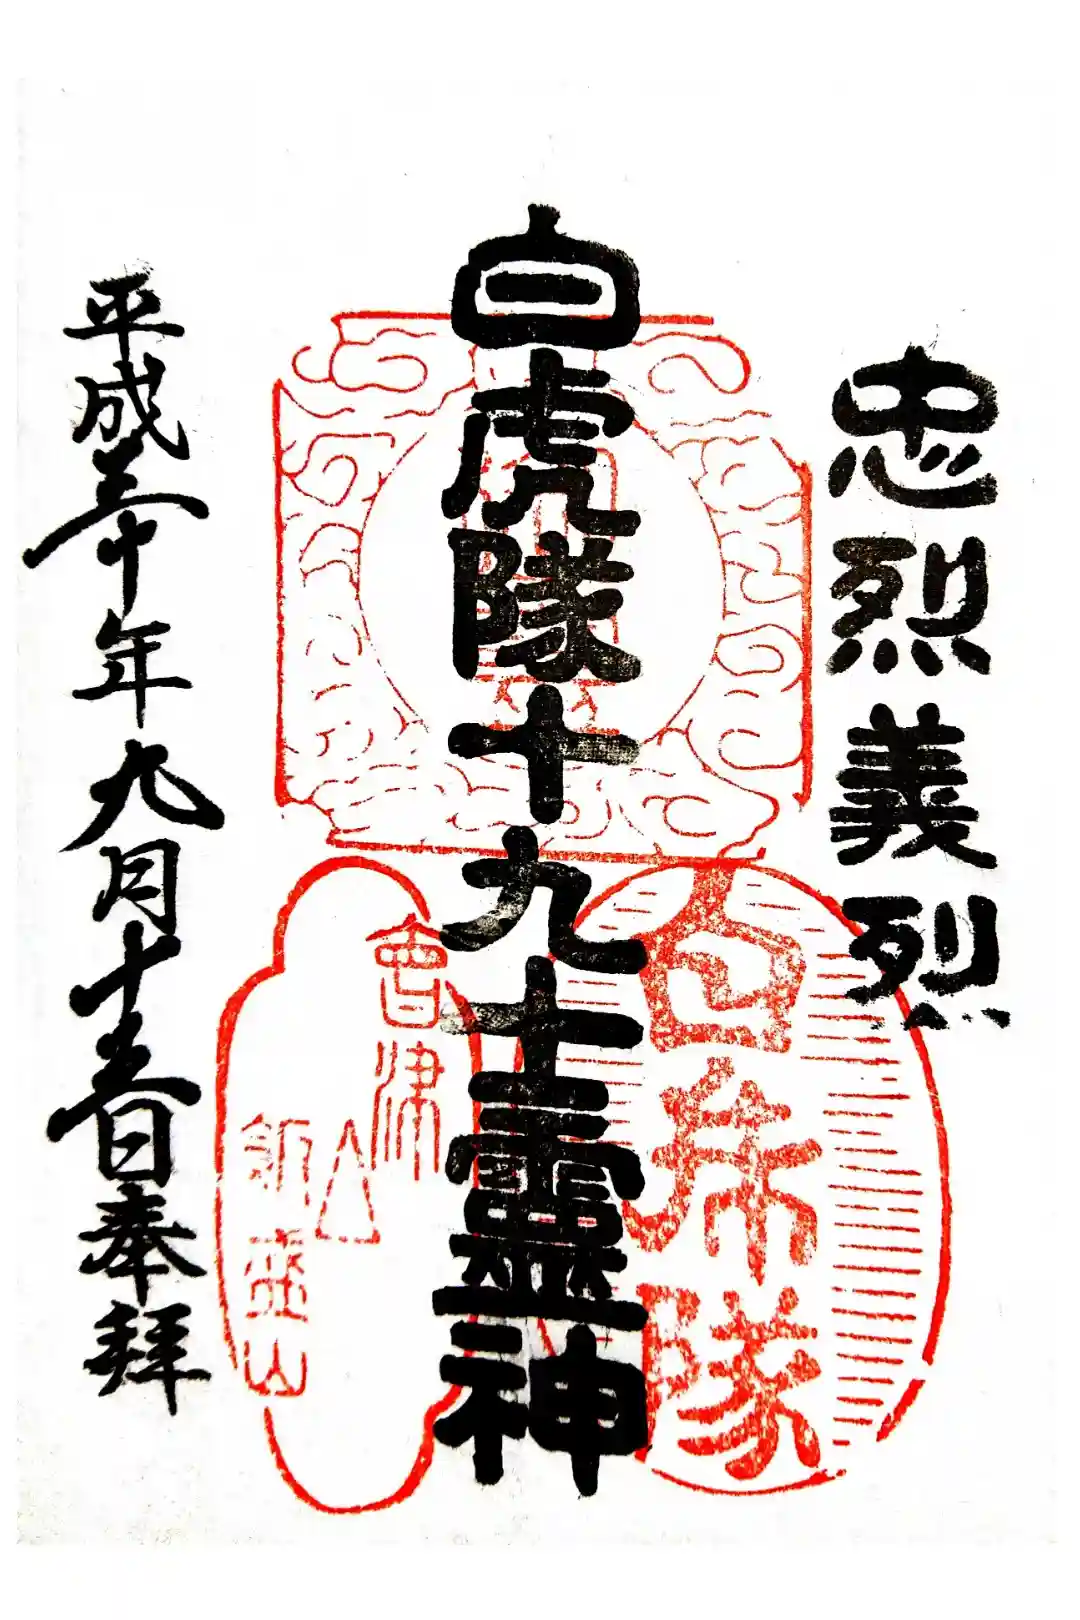 忠烈義烈
白虎隊十九士霊神
平成三十年九月十五日奉拝
白虎隊
會津
飯盛山